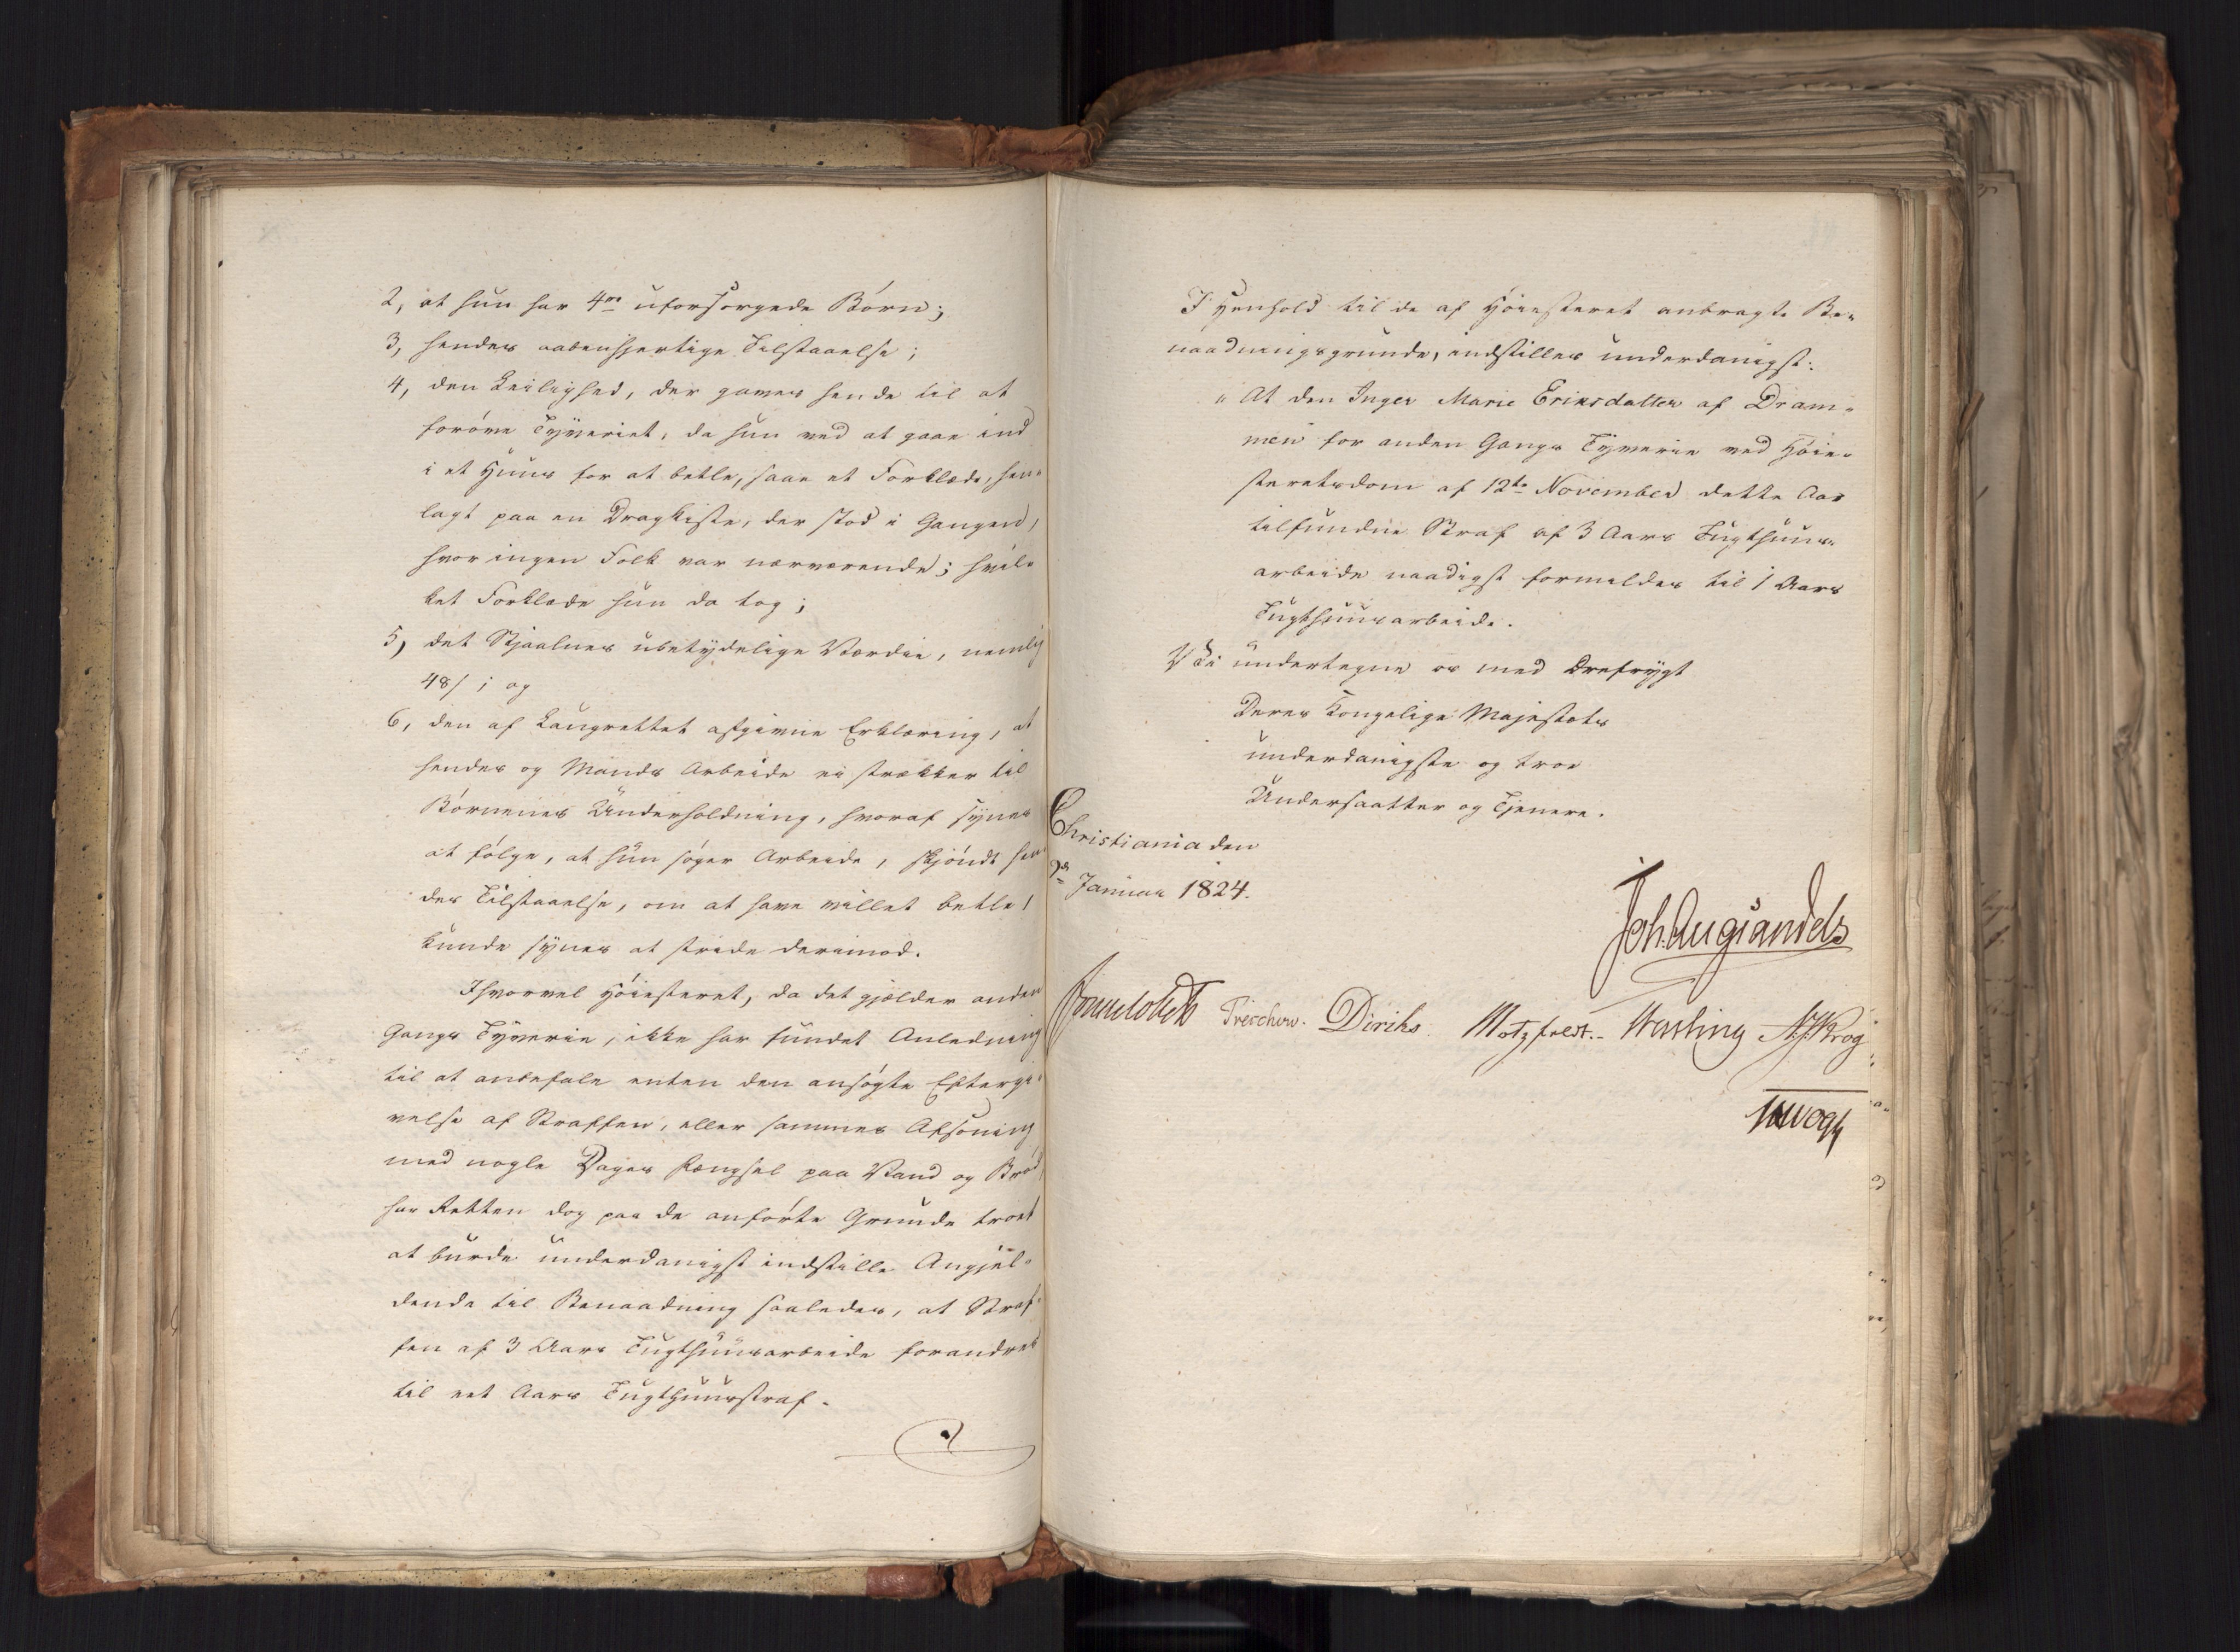 2, at hun har 4re uforsørgede Børn;
3, hendes aabenhjertige Tilstaaelse;
4, den Leilighed, der gaves hende til at
forøve Tyveriet, da hun ved at gaae ind
i et Huus for at betle, saae et Forklæde, hen-
lagt paa en Dragkiste, der stod i Gangen,
hvor ingen Folk var nærværende; hvil-
ket Forklæde hun da tog;
5, det Stjaalnes ubetydelige Værdie, nemlig
48 ß; og
6, den af Laugrettet afgivne Erklæring, at
hendes og Mands Arbeide ei strækker til
Børnenes Underholdning, hvoraf synes
at følge, at hun søger Arbeide, skjøndt hen-
des Tilstaaelse, om at have villet betle,
kunde synes at stride derimod.
Ihvorvel Høiesteret, da det gjælder anden
Gangs Tyverie, ikke har fundet Anledning
til at anbefale enten den ansøgte Eftergi-
velse af Straffen, eller sammes Afsoning
med nogle Dages Fængsel paa Vand og Brød,
har Retten dog paa de anførte Grunde troet
at burde underdanigst indstille Angjel-
dende til Benaadning saaledes, at Straf-
fen af 3 Aars Tugthuusarbeide forandres
til eet Aars Tugthuusstraf.
I Henhold til de af Høiesteret anbragte Be-
naadningsgrunde, indstilles underdanigst:
"At den Inger Marie Eriksdatter af Dram-
men for anden Gangs Tyverie ved Høie-
steretsdom af 12te November dette Aar
tilfundne Straf af 3 Aars Tugthuus-
arbeide naadigst formildes til 1 Aars
Tugthuusarbeide.
Vi undertegne os med Ærefrygt
Deres Kongelige Majestæts
underdanigste og troe
Undersaatter og Tjenere.
Christiania den
Januar 1824.
Joh. Aug. Sandels
Sommerhielm Treschow. Diriks Motzfeldt. Krog
Vogt